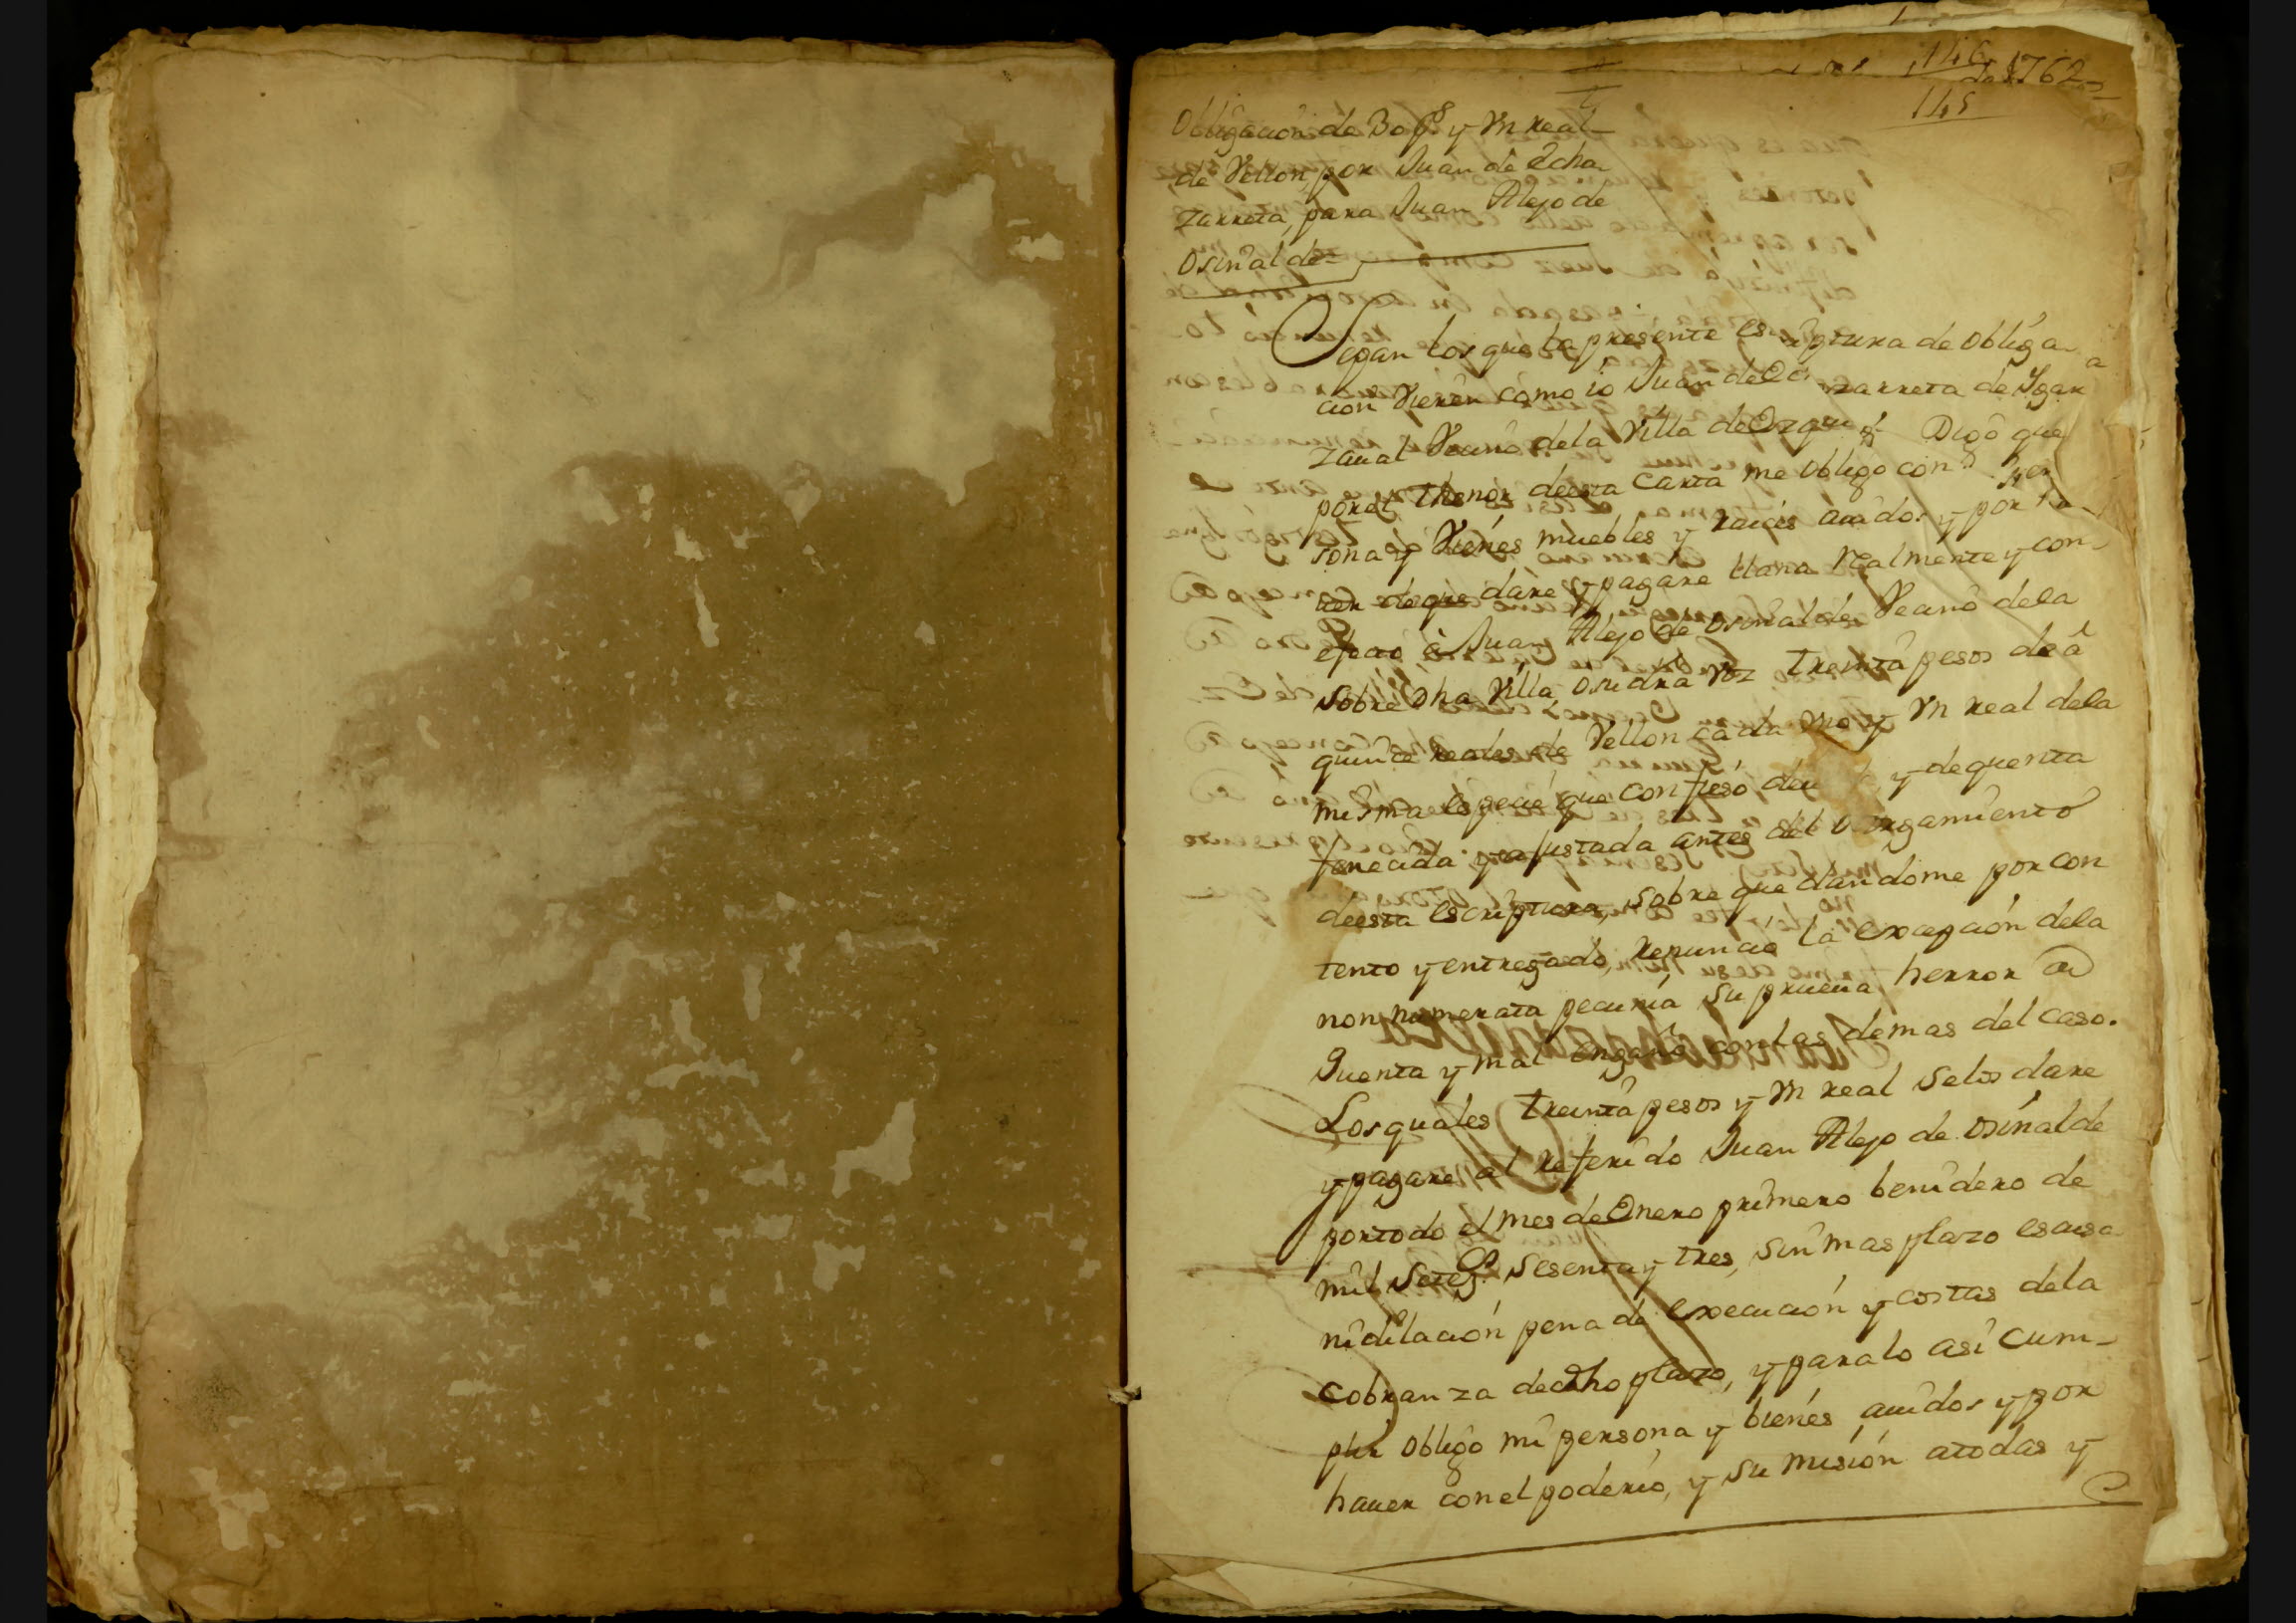 146
de 1762
145
Obligacion de 30 ps. y Vn real
de Vellon, por Juan de Echa-
zarreta, para Juan Alejo de
Osinalde
Sepan los que la presente escriptura de obliga-
cion Vieren como io Juan de Echazarreta de Ygar a
zaual Vecino dela Villa de Ezqui Digo que
porel thenor deesta Carta me obligo con per
sona y Vienes muebles y raices auidos y por ha
uer de que dare y pagare llana realmente y con
efecto à Juan Alejo de Osinalde Vecino dela
sobre Dha Villa, o su dra voz treinta pesos de â
quince reales de Vellon cada vno y Vn real dela
misma especie que confieso deu y de quenta
fenecida y ajustada antes del otorgamiento
deesta escriptura, sobre que dandome por con
tento y entregado, renuncio la excepcion dela
non numerata pecunia su prueua herror de
Quenta y mal engaño con las demas del caso.
Los quales treinta pesos y Vn real selos dare
y pagare al referido Juan Alejo de Osinalde
por todo el mes de Enero primero benidero de
mil Seteçs. sesenta y tres, sin mas plazo escusa
ni dilacion pena de execucion y costas dela
cobranza de dicho plazo, y paralo asi cum-
plir obligo mi persona y bienes auidos y por
hauer con el poderio, y sumision atodas y